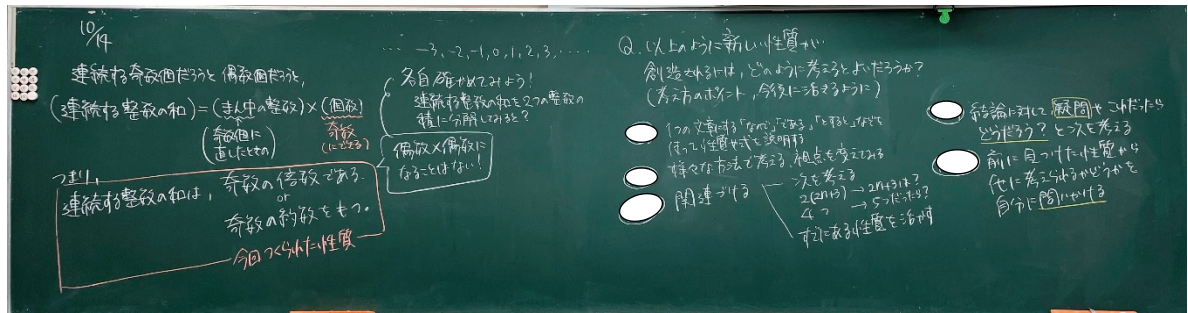 10/14
連続する奇数個だろうと偶数個だろうと,
(連続する整数の和)=(まん中の整数)×(個数)
(奇数個に
直したときの)
奇数
(にできる)
つまり,
連続する整数の和は, 奇数の倍数である.
or
奇数の約数をもつ。
今回つくられた性質
… -3, -2, -1, 0, 1, 2, 3, ……
各自確かめてみよう!
連続する整数の和を2つの整数の
積に分解してみると?
偶数×偶数に
なることはない!
Q. 以上のように新しい性質が
創造されるには, どのように考えるとよいだろうか?
(考え方のポイント, 今後に活きるように)
1つの文章にする「なので」,「である」,「とすると」などを
使って性質や式を説明する
様々な方法で考える, 視点を変えてみる
関連づける
次を考える
2(2n+3) → 2n+3は?
4つ → 5つだったら?
すでにある性質を活かす
結論に対して疑問やこれだったら
どうだろう?と次を考える
前に見つけた性質から
他に考えられるかどうかを
自分に問いかける